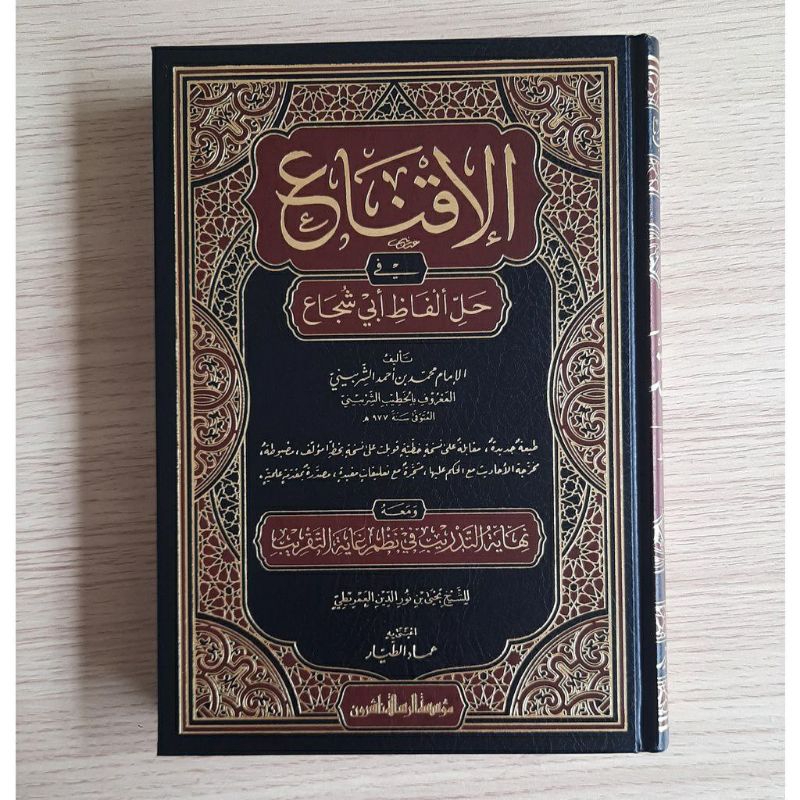 الإقناع
في
حَلِّ ألفَاظِ أبي شُجَاع
تأليف
الإمام محمد بن أحمد الشربيني
المعروف بالخطيب الشربيني
المتوفى سنة ٩٧٧ هـ
طبعة جديدة، مقابلة على نسخة خطية قوبلت على نسخة بخط المؤلف، مضبوطة،
مخرجة الأحاديث مع الحكم عليها، مشجرة مع تعليقات مفيدة، مصدرة بمقدمة علمية.
ومعه
نهاية التدريب في نظم غاية التقريب
للشيخ يحيى بن نور الدين العمريطي
اعتنى به
عماد الطيار
مؤسسة الرسالة ناشرون